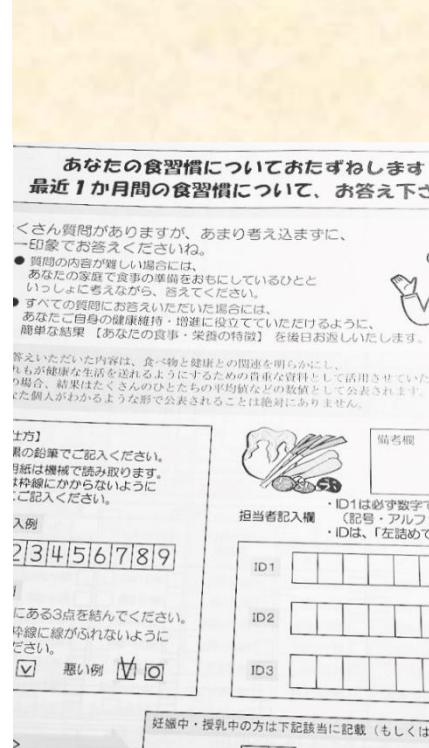 あなたの食習慣についておたずねします
最近1か月間の食習慣について、お答え下さ
くさん質問がありますが、あまり考え込まずに、
一印象でお答えくださいね。
● 質問の内容が難しい場合には、
あなたの家庭で食事の準備をおもにしているひとと
いっしょに考えながら、答えてください。
● すべての質問にお答えいただいた場合には、
あなたご自身の健康維持・増進に役立てていただけるように、
簡単な結果【あなたの食事・栄養の特徴】を後日お返しいたします。
答えいただいた内容は、食べ物と健康との関連を明らかにし、
れもが健康な生活を送れるようにするための貴重な資料として活用させていた
の場合、結果はたくさんのひとたちの平均値などの数値として公表されます。
た個人がわかるような形で公表されることは絶対にありません。
仕方】
黒の鉛筆でご記入ください。
用紙は機械で読み取ります。
は枠線にかからないように
にご記入ください。
入例
2 3 4 5 6 7 8 9
にある3点を結んでください。
枠線に線がふれないように
ださい。
悪い例
備考欄
担当者記入欄
・ID1は必ず数字で
(記号・アルフ
・IDは、「左詰めて
ID1
ID2
ID3
妊娠中・授乳中の方は下記該当に記載(もしくは